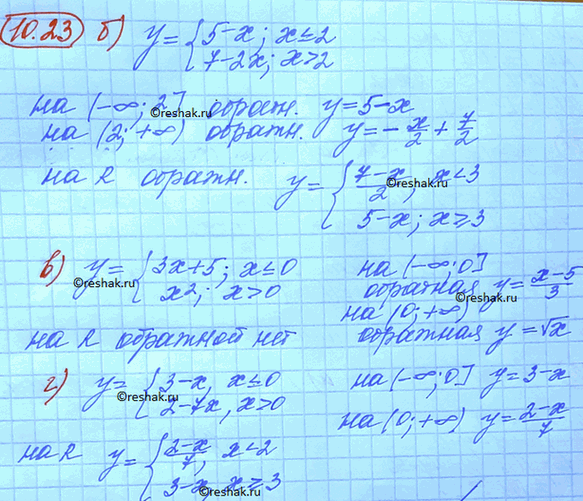 10.23 б) y = { 5-x; x≤2
7-2x; x>2
на (-∞; 2] обратн. y=5-x
на (2; +∞) обратн. y = -x/2 + 7/2
на R обратн. y = { (7-x)/2, x<3
5-x; x≥3
в) y = { 3x+5; x≤0
x²; x>0
на (-∞; 0]
обратная y = (x-5)/3
на (0; +∞)
обратная y = √x
на R обратной нет
г) y = { 3-x, x≤0
2-7x, x>0
на (-∞; 0] y = 3-x
на (0; +∞) y = (2-x)/7
на R y = { (2-x)/7, x<2
3-x, x≥3
©reshak.ru
©reshak.ru
©reshak.ru
©reshak.ru
©reshak.ru
©reshak.ru